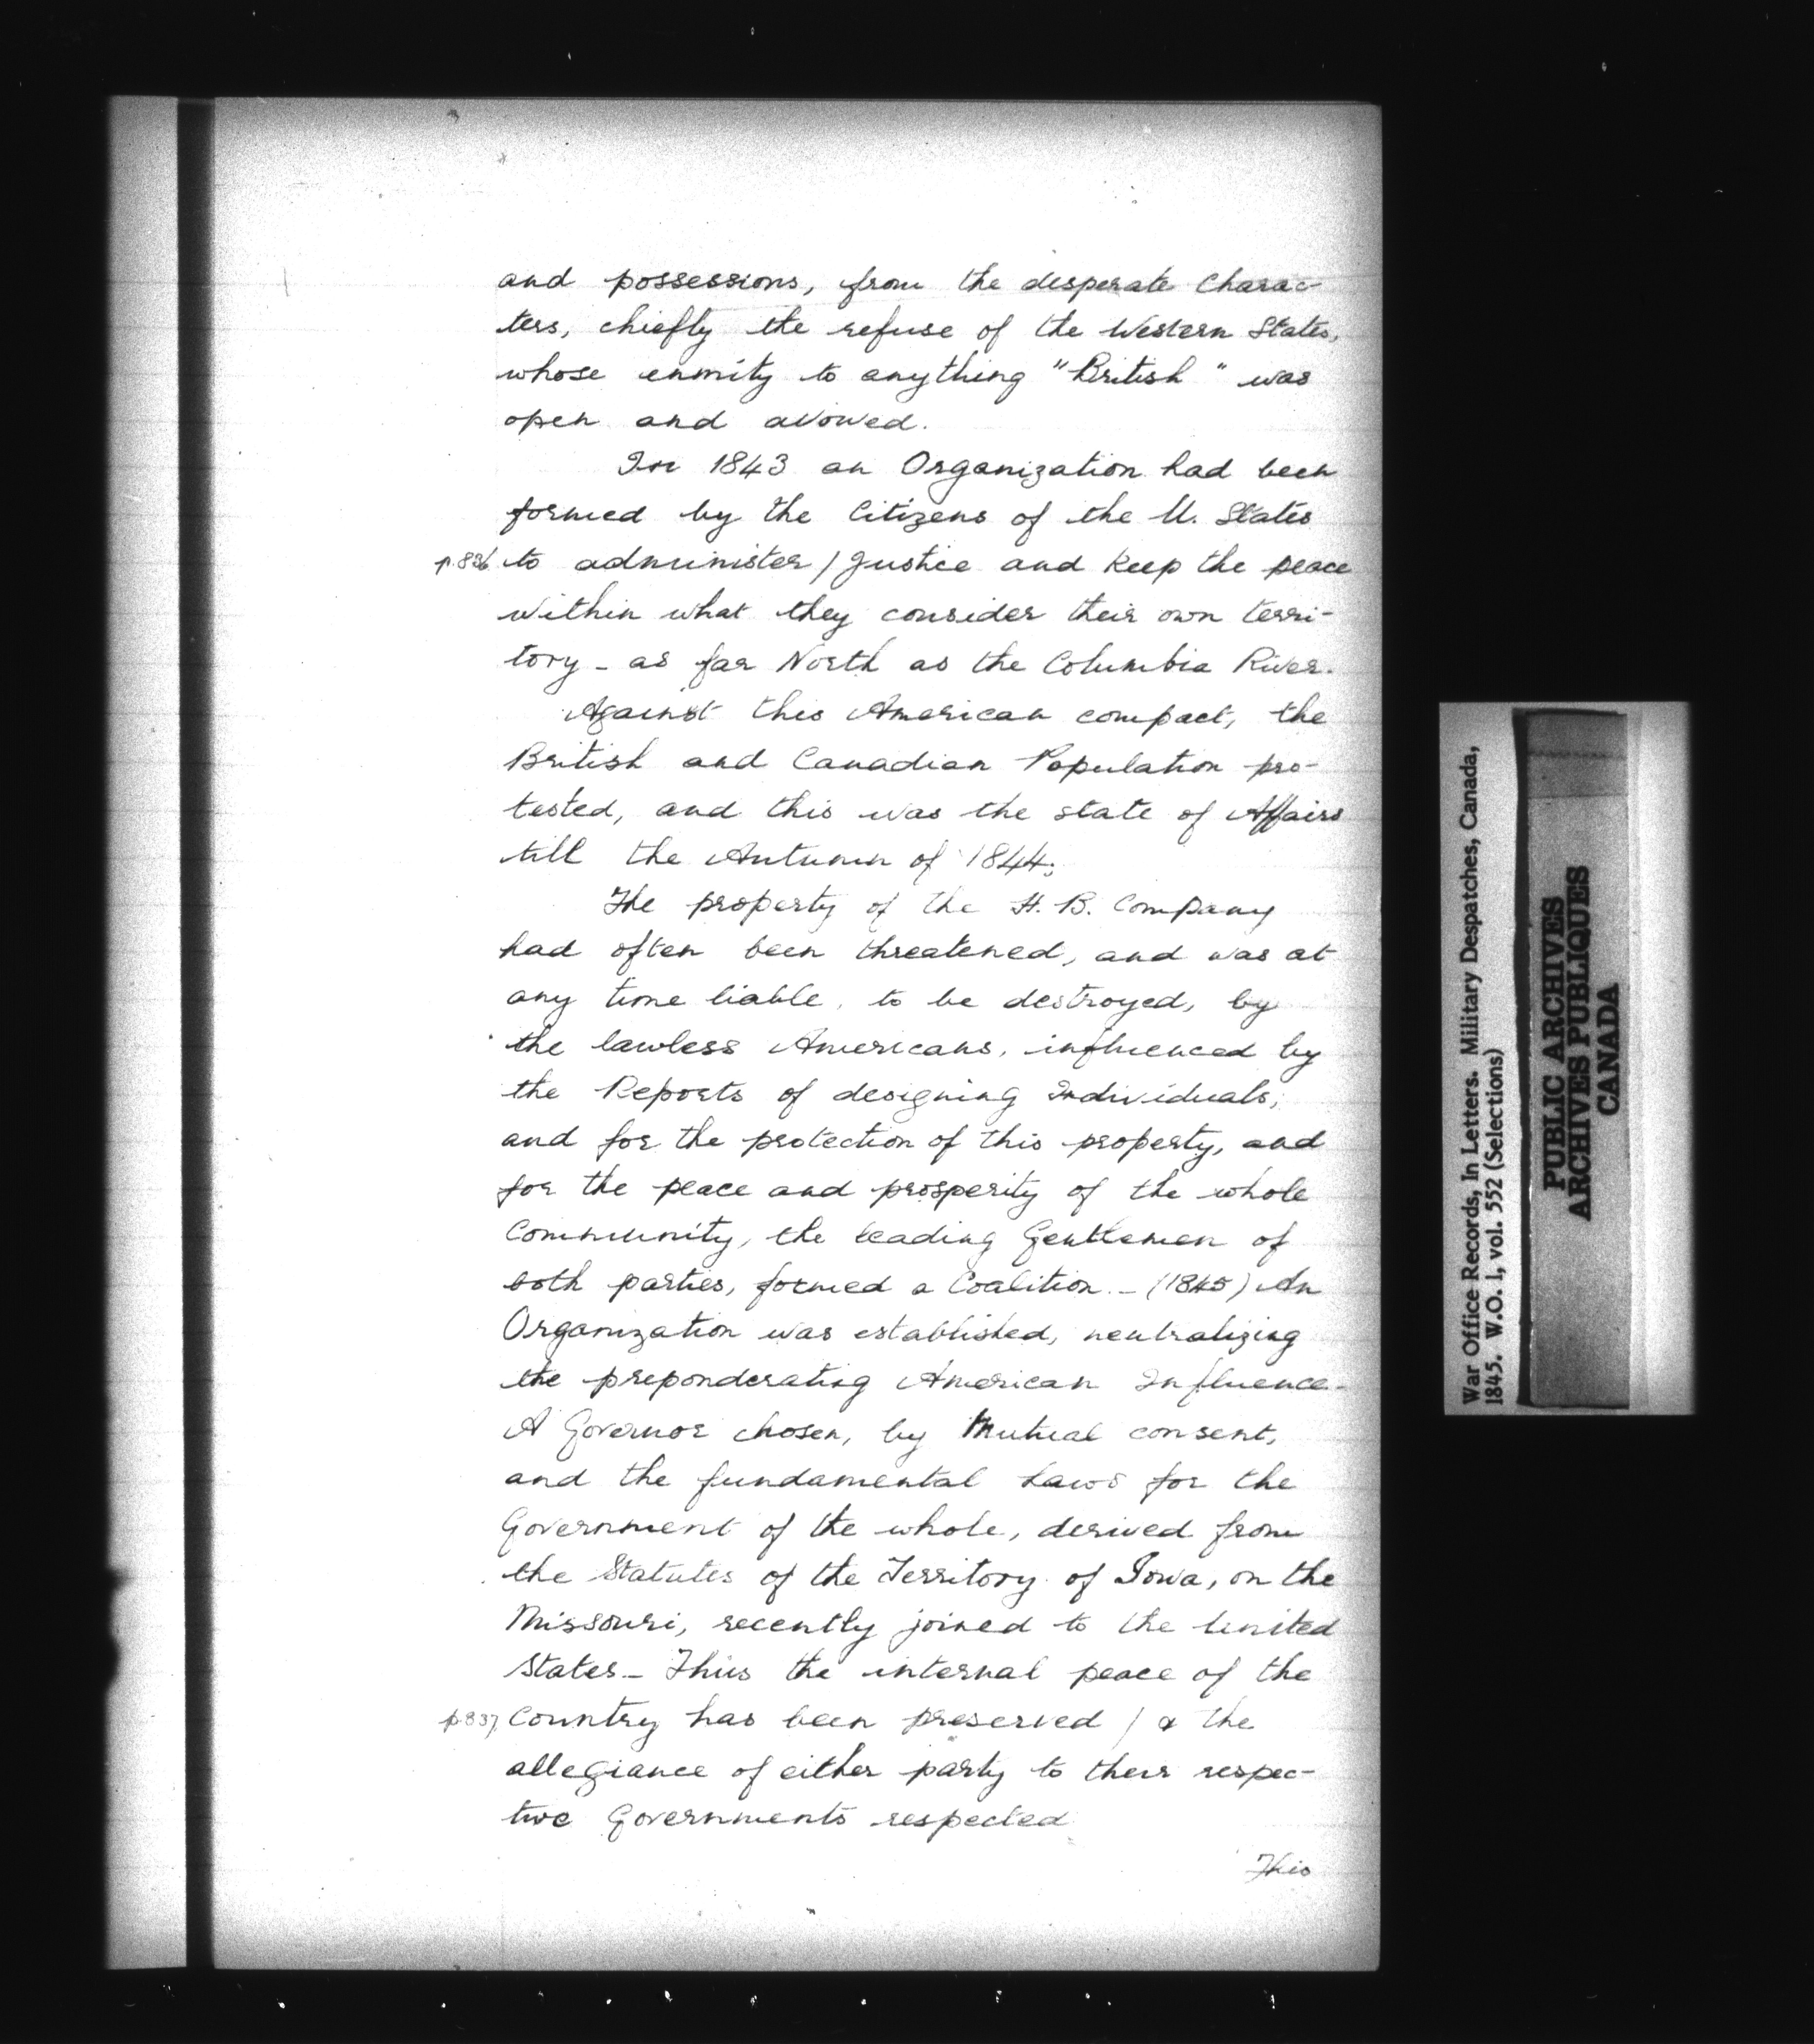 and possessions, from the desperate Charac-
ters, chiefly the refuse of the Western States,
whose enmity to anything "British" was
open and avowed.
In 1843 an Organization had been
formed by the Citizens of the U. States
p.836 to administer / Justice and keep the peace
within what they consider their own terri-
tory - as far North as the Columbia River.
Against this American compact, the
British and Canadian Population pro-
tested, and this was the state of Affairs
till the Autumn of 1844;
The property of the H. B. Company
had often been threatened, and was at
any time liable, to be destroyed, by
the lawless Americans, influenced by
the Reports of designing Individuals;
and for the protection of this property, and
for the peace and prosperity of the whole
Community, the leading Gentlemen of
both parties, formed a Coalition. - (1845) An
Organization was established, neutralizing
the preponderating American Influence -
A Governor chosen, by Mutual consent,
and the fundamental Laws for the
Government of the whole, derived from
the Statutes of the Territory of Iowa, on the
Missouri, recently joined to the United
States - Thus the internal peace of the
p.837 Country has been preserved / & the
allegiance of either party to their respec-
tive Governments respected
This
War Office Records, In Letters. Military Despatches, Canada,
1845. W.O. 1, vol. 552 (Selections)
PUBLIC ARCHIVES
ARCHIVES PUBLIQUES
CANADA